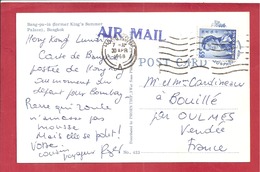 Bang-pa-in (former King's Summer
Palace), Bangkok
AIR MAIL
POST CARD
Hong Kong
Carte de
postée de Hong Kong
au moment du
départ pour Bombay
Pierre qui roule
n'amasse pas
mousse
Mais elle se polit!
Votre
cousin
Roger
Mr et Mme Cardineau
à Bouillé
par OULMES
Vendée
France